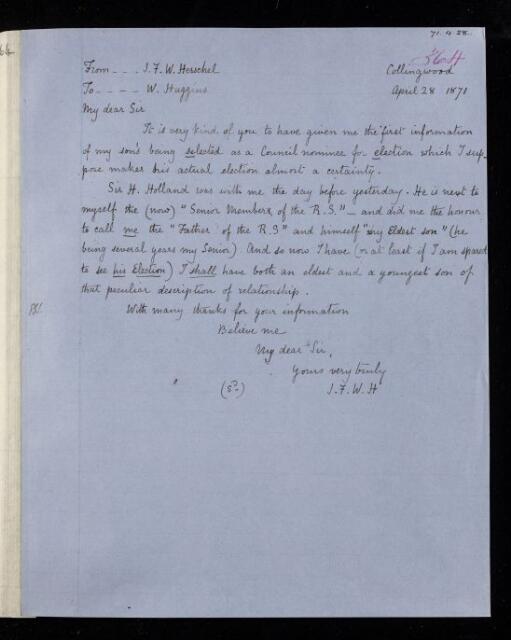 71.4.28.
From - - - J.F.W. Herschel
Collingwood
To - - - - W. Huggins
April 28 1871
My dear Sir
It is very kind of you to have given me the first information
of my son's being selected as a Council nominee for election which I sup-
pose makes his actual election almost a certainty.
Sir H. Holland was with me the day before yesterday. He is next to
myself the (now) "Senior Member of the R.S." — and did me the honour
to call me the "Father of the R.S" and himself "my Eldest son" (he
being several years my Senior). And so now I have (or at least if I am spared
to see his Election) I shall have both an eldest and a youngest son of
that peculiar description of relationship.
With many thanks for your information
Believe me
My dear Sir,
Yours very truly
(sd)
J.F.W.H